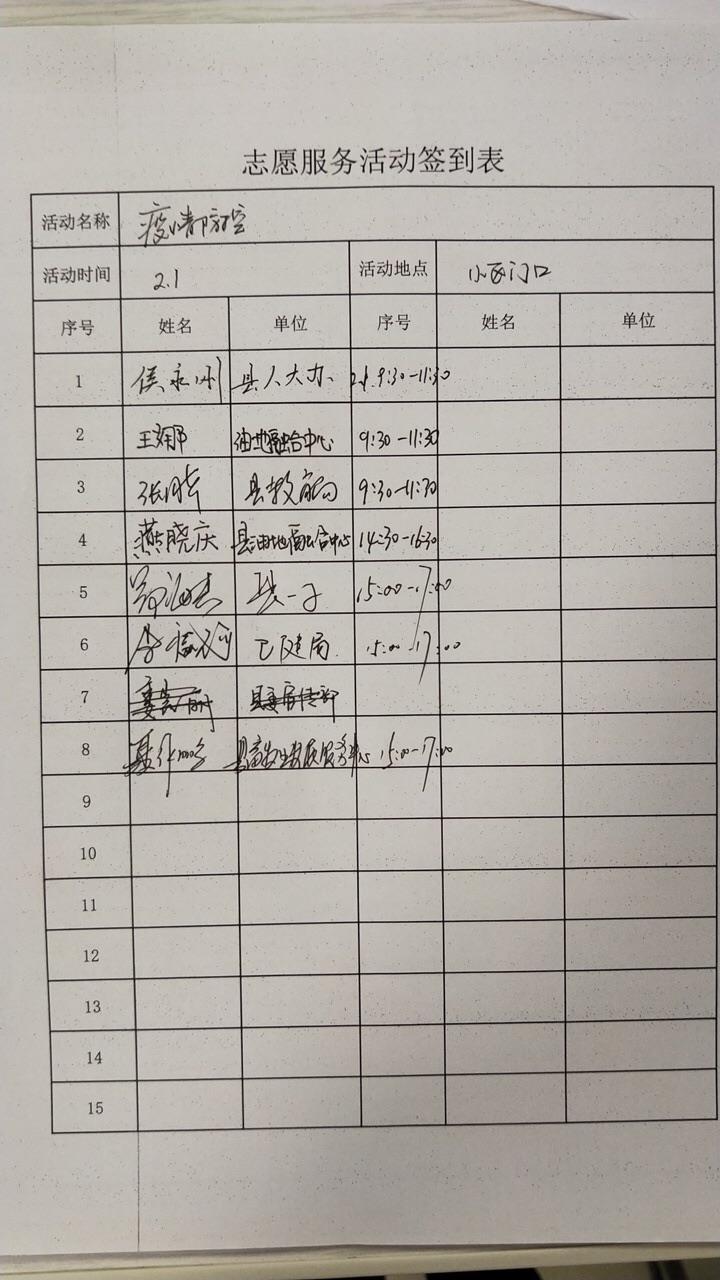 志愿服务活动签到表
活动名称 疫情防控
活动时间 2.1 活动地点 小区门口
序号 姓名 单位 序号 姓名 单位
1 侯永川 县人大办 2.1 9:30-11:30
2 王娜 油地融合中心 9:30-11:30
3 县教育局 9:30-11:30
4 燕晓庆 县油地融合中心 14:30-16:30
5 县一子 15:00-17:00
6 李 住建局 15:00-17:00
7 县委宣传部
8 县畜牧业发展服务中心 15:00-17:00
9
10
11
12
13
14
15